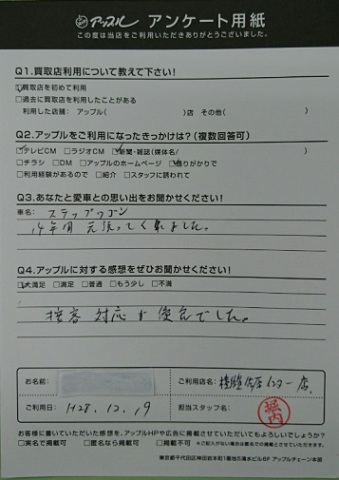 アップル アンケート用紙
この度は当店をご利用いただきありがとうございました。
Q1.買取店利用について教えて下さい!
☑買取店を初めて利用
□過去に買取店を利用したことがある
利用した店舗: アップル( )店 その他( )
Q2.アップルをご利用になったきっかけは?(複数回答可)
☑テレビCM □ラジオCM ☑新聞・雑誌(媒体名/ )
□チラシ □DM □アップルのホームページ ☑通りがかりで
□利用経験があるので □紹介 □スタッフに誘われて
Q3.あなたと愛車との思い出をお聞かせください!
車名: ステップワゴン
14年間 元気に走ってくれました。
Q4.アップルに対する感想をぜひお聞かせください!
☑大満足 □満足 □普通 □もう少し □不満
接客 対応が
でした。
お名前:
ご利用店名: インター店
ご利用日: H28.12.19
担当スタッフ名: 堀内
お客様に書いていただいた感想を、アップルHPや広告に掲載させていただいてもよろしいでしょうか?
□実名で掲載可 □匿名なら掲載可 □掲載不可 ※ご記入がない場合は匿名での掲載とさせていただきます。
アップルチェーン本部